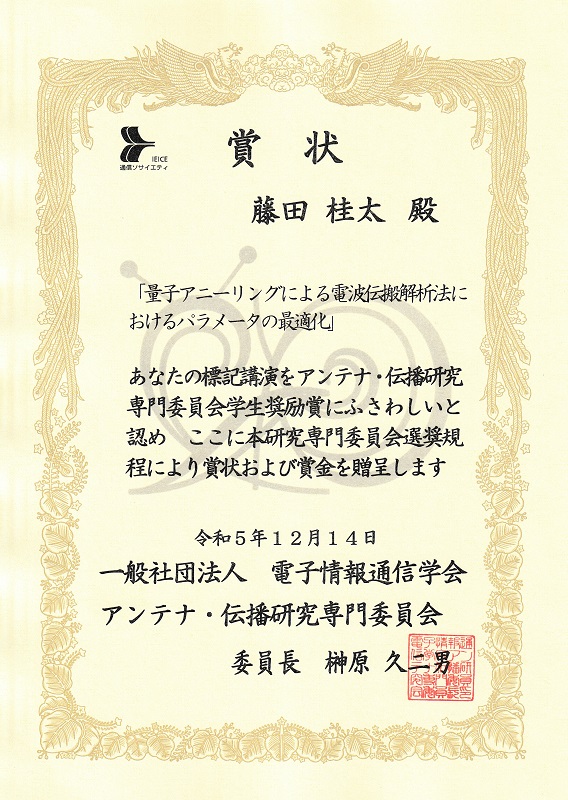 IEICE
通信ソサイエティ
賞 状
藤田 桂太 殿
「量子アニーリングによる電波伝搬解析法に
おけるパラメータの最適化」
あなたの標記講演をアンテナ・伝播研究
専門委員会学生奨励賞にふさわしいと
認め ここに本研究専門委員会選奨規
程により賞状および賞金を贈呈します
令和5年12月14日
一般社団法人 電子情報通信学会
アンテナ・伝播研究専門委員会
委員長 榊原 久二男